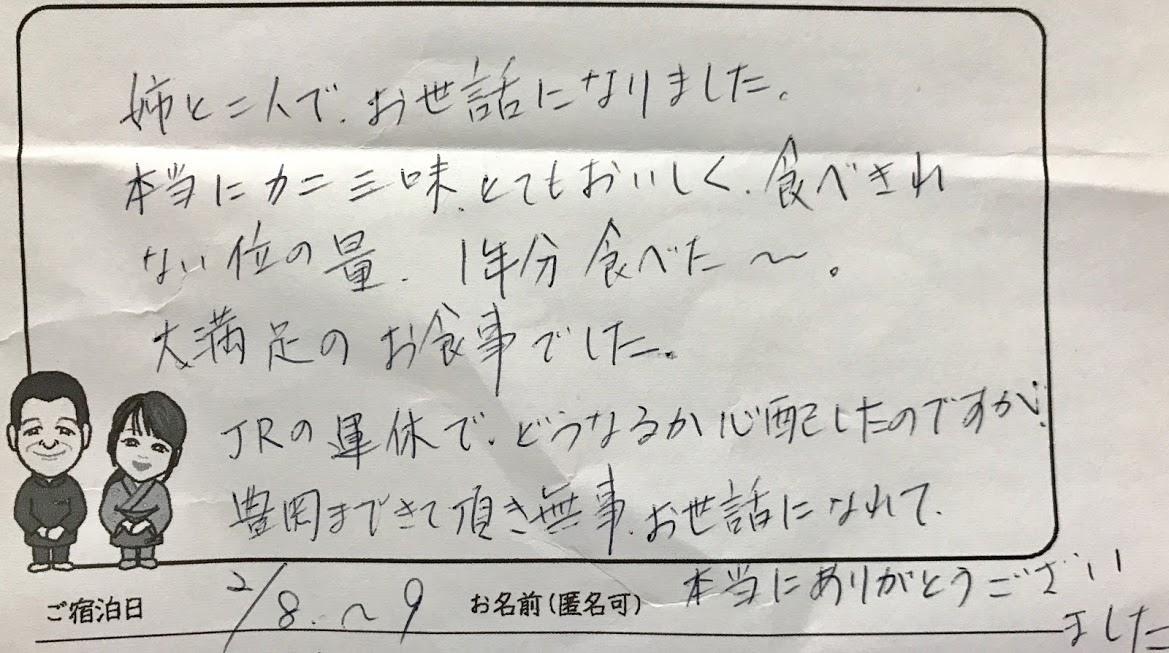 姉と二人で、お世話になりました。
本当にカニ三味、とてもおいしく、食べきれ
ない位の量、1年分食べた〜。
大満足のお食事でした。
JRの運休で、どうなるか心配したのですが、
豊岡まできて頂き無事、お世話になれて、
本当にありがとうござい
ました
ご宿泊日 2/8.〜9 お名前(匿名可)